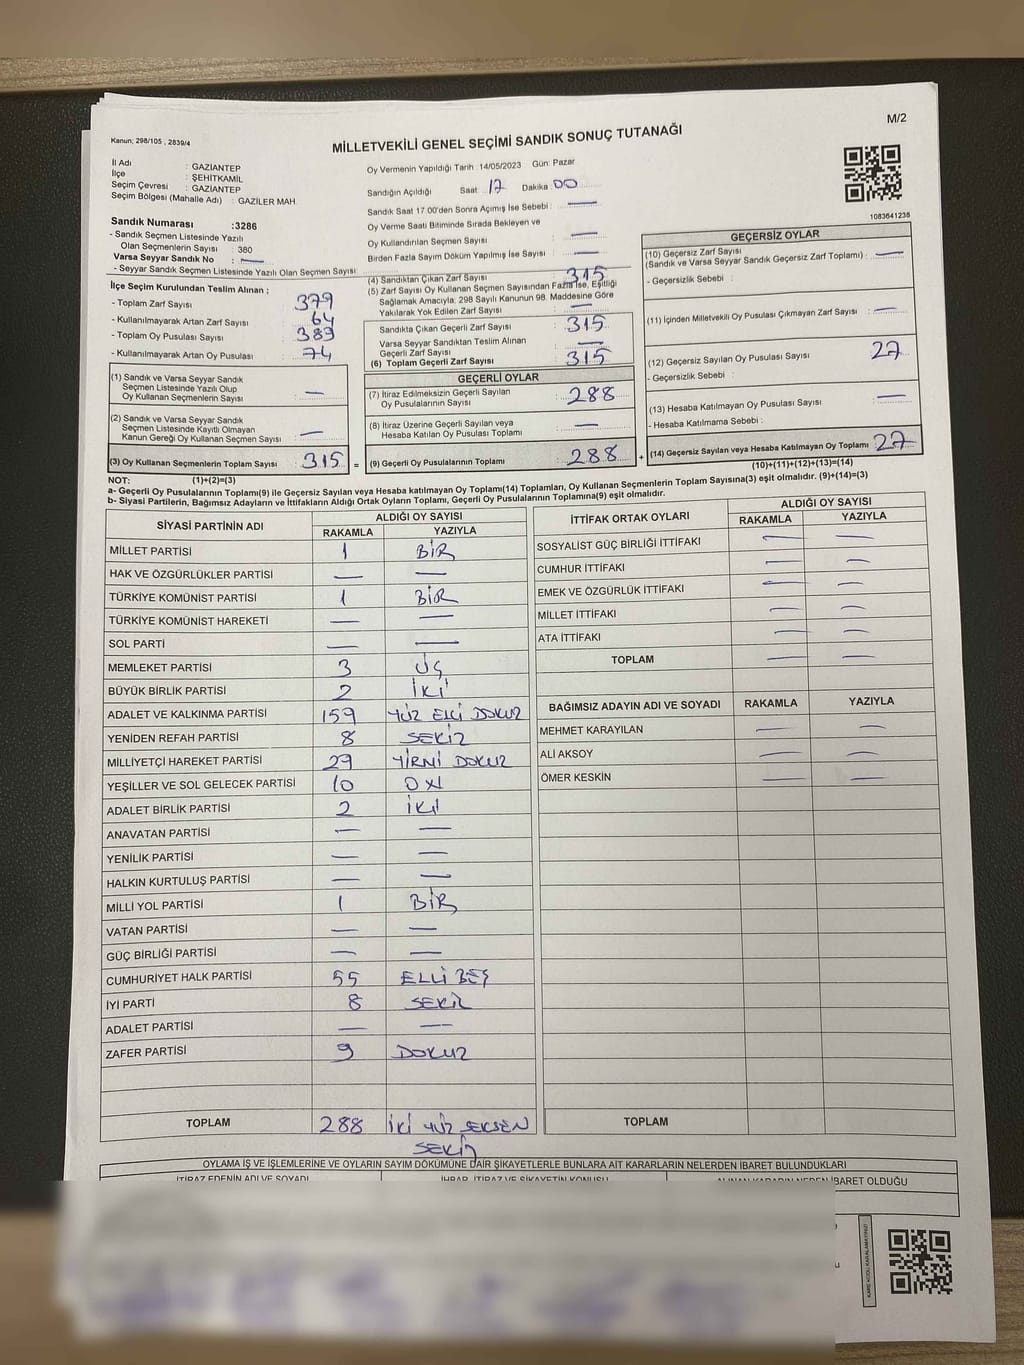 M/2
Kanun: 298/105 , 2839/4
MİLLETVEKİLİ GENEL SEÇİMİ SANDIK SONUÇ TUTANAĞI
İl Adı : GAZİANTEP
İlçe : ŞEHİTKAMİL
Seçim Çevresi : GAZİANTEP
Seçim Bölgesi (Mahalle Adı) : GAZİLER MAH
Sandık Numarası :3286
- Sandık Seçmen Listesinde Yazılı
Olan Seçmenlerin Sayısı : 380
Varsa Seyyar Sandık No : —
- Seyyar Sandık Seçmen Listesinde Yazılı Olan Seçmen Sayısı
Oy Vermenin Yapıldığı Tarih 14/05/2023 Gün: Pazar
Sandığın Açıldığı Saat 17 Dakika 00
Sandık Saat 17.00'den Sonra Açılmış İse Sebebi : —
Oy Verme Saati Bitiminde Sırada Bekleyen ve
Oy Kullandırılan Seçmen Sayısı —
Birden Fazla Sayım Döküm Yapılmış İse Sayısı : —
1083641238
İlçe Seçim Kurulundan Teslim Alınan ;
- Toplam Zarf Sayısı 379
- Kullanılmayarak Artan Zarf Sayısı 64
- Toplam Oy Pusulası Sayısı 389
- Kullanılmayarak Artan Oy Pusulası 74
(1) Sandık ve Varsa Seyyar Sandık
Seçmen Listesinde Yazılı Olup
Oy Kullanan Seçmenlerin Sayısı : —
(2) Sandık ve Varsa Seyyar Sandık
Seçmen Listesinde Kayıtlı Olmayan
Kanun Gereği Oy Kullanan Seçmen Sayısı : —
(3) Oy Kullanan Seçmenlerin Toplam Sayısı : 315 =
(4) Sandıktan Çıkan Zarf Sayısı 315
(5) Zarf Sayısı Oy Kullanan Seçmen Sayısından Fazla İse, Eşitliği
Sağlamak Amacıyla, 298 Sayılı Kanunun 98. Maddesine Göre
Yakılarak Yok Edilen Zarf Sayısı : —
Sandıkta Çıkan Geçerli Zarf Sayısı 315
Varsa Seyyar Sandıktan Teslim Alınan
Geçerli Zarf Sayısı —
(6) Toplam Geçerli Zarf Sayısı 315
GEÇERLİ OYLAR
(7) İtiraz Edilmeksizin Geçerli Sayılan
Oy Pusulalarının Sayısı : 288
(8) İtiraz Üzerine Geçerli Sayılan veya
Hesaba Katılan Oy Pusulası Toplamı : —
(9) Geçerli Oy Pusulalarının Toplamı : 288 +
GEÇERSİZ OYLAR
(10) Geçersiz Zarf Sayısı
(Sandık ve Varsa Seyyar Sandık Geçersiz Zarf Toplamı) : —
- Geçersizlik Sebebi :
(11) İçinden Milletvekili Oy Pusulası Çıkmayan Zarf Sayısı : —
(12) Geçersiz Sayılan Oy Pusulası Sayısı : 27
- Geçersizlik Sebebi :
(13) Hesaba Katılmayan Oy Pusulası Sayısı : —
- Hesaba Katılmama Sebebi :
(14) Geçersiz Sayılan veya Hesaba Katılmayan Oy Toplamı : 27
(10)+(11)+(12)+(13)=(14)
NOT: (1)+(2)=(3)
a- Geçerli Oy Pusulalarının Toplamı(9) ile Geçersiz Sayılan veya Hesaba katılmayan Oy Toplamı(14) Toplamları, Oy Kullanan Seçmenlerin Toplam Sayısına(3) eşit olmalıdır. (9)+(14)=(3)
b- Siyasi Partilerin, Bağımsız Adayların ve İttifakların Aldığı Ortak Oyların Toplamı, Geçerli Oy Pusulalarının Toplamına(9) eşit olmalıdır.
SİYASİ PARTİNİN ADI ALDIĞI OY SAYISI
RAKAMLA YAZIYLA
MİLLET PARTİSİ 1 BİR
HAK VE ÖZGÜRLÜKLER PARTİSİ — —
TÜRKİYE KOMÜNİST PARTİSİ 1 BİR
TÜRKİYE KOMÜNİST HAREKETİ — —
SOL PARTİ — —
MEMLEKET PARTİSİ 3 ÜÇ
BÜYÜK BİRLİK PARTİSİ 2 İKİ
ADALET VE KALKINMA PARTİSİ 159 YÜZ ELLİ DOKUZ
YENİDEN REFAH PARTİSİ 8 SEKİZ
MİLLİYETÇİ HAREKET PARTİSİ 29 YİRMİ DOKUZ
YEŞİLLER VE SOL GELECEK PARTİSİ 10 ON
ADALET BİRLİK PARTİSİ 2 İKİ
ANAVATAN PARTİSİ — —
YENİLİK PARTİSİ — —
HALKIN KURTULUŞ PARTİSİ — —
MİLLİ YOL PARTİSİ 1 BİR
VATAN PARTİSİ — —
GÜÇ BİRLİĞİ PARTİSİ — —
CUMHURİYET HALK PARTİSİ 55 ELLİ BEŞ
İYİ PARTİ 8 SEKİZ
ADALET PARTİSİ — —
ZAFER PARTİSİ 9 DOKUZ
TOPLAM 288 İKİ YÜZ SEKSEN
SEKİZ
İTTİFAK ORTAK OYLARI ALDIĞI OY SAYISI
RAKAMLA YAZIYLA
SOSYALİST GÜÇ BİRLİĞİ İTTİFAKI — —
CUMHUR İTTİFAKI — —
EMEK VE ÖZGÜRLÜK İTTİFAKI — —
MİLLET İTTİFAKI — —
ATA İTTİFAKI — —
TOPLAM — —
BAĞIMSIZ ADAYIN ADI VE SOYADI RAKAMLA YAZIYLA
MEHMET KARAYILAN — —
ALİ AKSOY — —
ÖMER KESKİN — —
TOPLAM
OYLAMA İŞ VE İŞLEMLERİNE VE OYLARIN SAYIM DÖKÜMÜNE DAİR ŞİKAYETLERLE BUNLARA AİT KARARLARIN NELERDEN İBARET BULUNDUKLARI
İTİRAZ EDENİN ADI VE SOYADI İHBAR, İTİRAZ VE ŞİKAYETİN KONUSU ALINAN KARARIN NEDEN İBARET OLDUĞU
KARE KODU KARALAMAYINIZ!